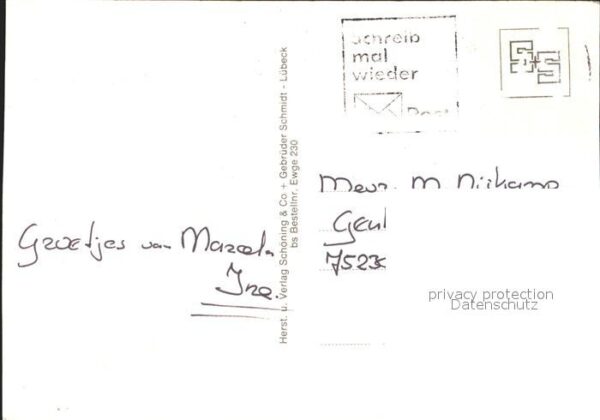 Schreib
mal
wieder
Post
S+S
Groetjes van Marcel
Ine.
Herst. u. Verlag Schöning & Co + Gebrüder Schmidt - Lübeck
bs Bestellnr. Ewge 230
Mevr. M
privacy protection
Datenschutz